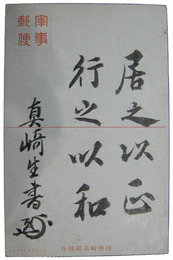 軍事郵便
居之以正
行之以和
真崎生書